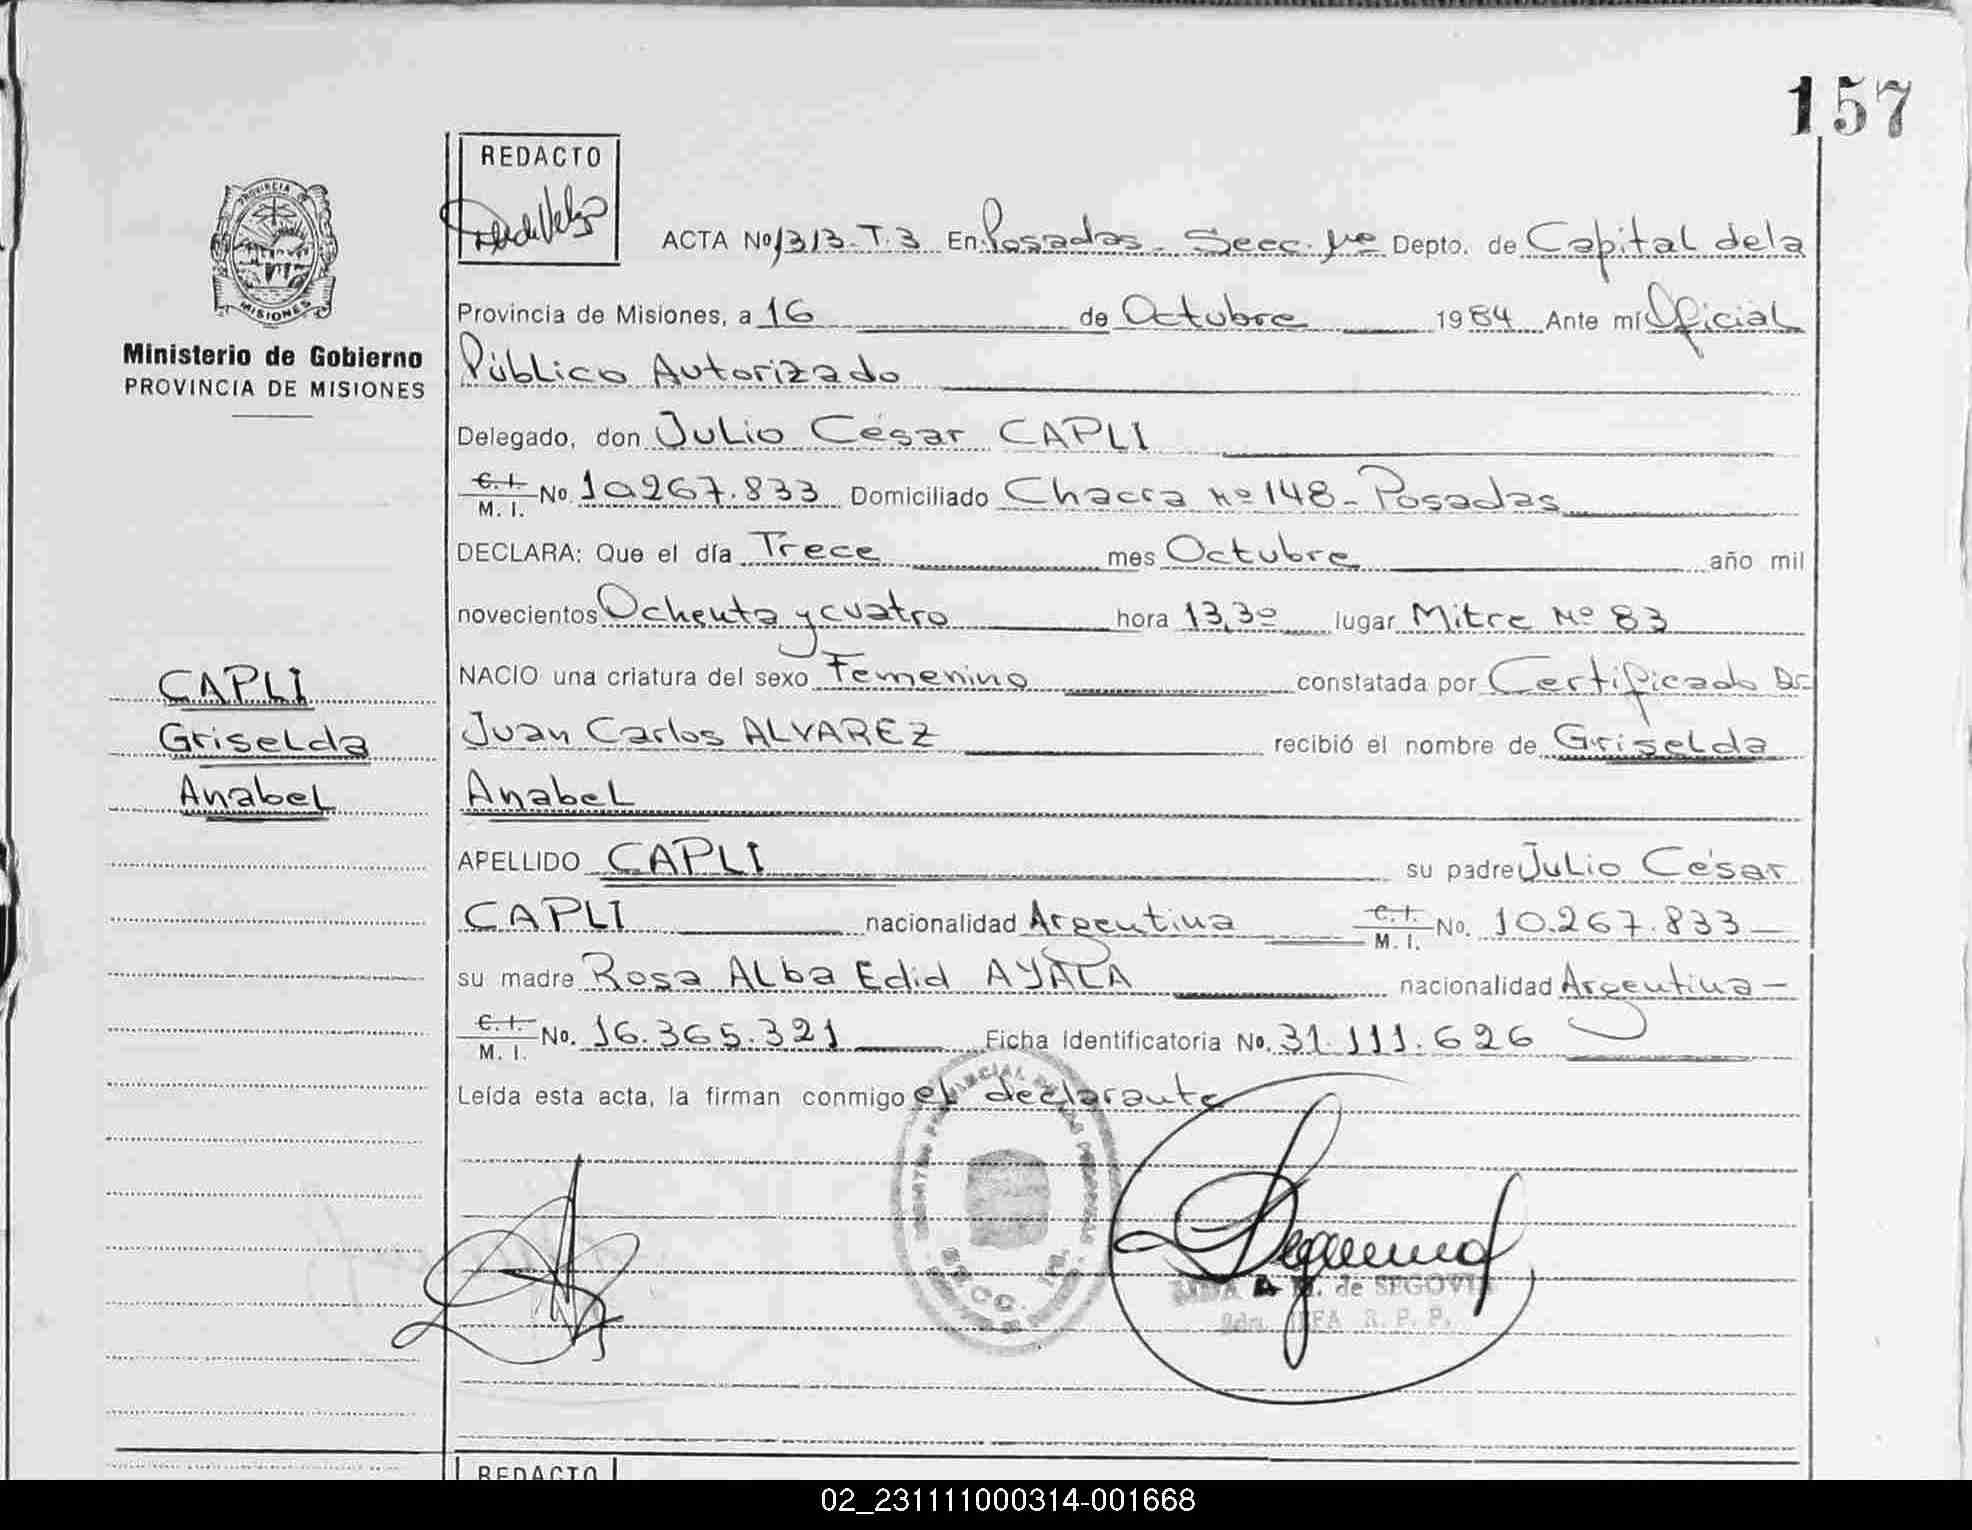 157
REDACTO
PROVINCIA DE
MISIONES
Ministerio de Gobierno
PROVINCIA DE MISIONES
ACTA No 1313-T.3 En Posadas - Secc. 1ra Depto. de Capital de la
Provincia de Misiones, a 16 de Octubre 1984 Ante mí Oficial
Público Autorizado
Delegado, don Julio César CAPLI
C.I. M.I. No. 10.267.833 Domiciliado Chacra Nº 148 - Posadas
DECLARA: Que el día Trece mes Octubre año mil
novecientos Ochenta y cuatro hora 13,30 lugar Mitre Nº 83
NACIO una criatura del sexo Femenino constatada por Certificado Dr.
Juan Carlos ALVAREZ recibió el nombre de Griselda
Anabel
APELLIDO CAPLI su padre Julio César
CAPLI nacionalidad Argentina C.I. M.I. No. 10.267.833 -
su madre Rosa Alba Edid AYALA nacionalidad Argentina -
C.I. M.I. No. 16.365.321 Ficha Identificatoria No. 31.111.626
Leída esta acta, la firman conmigo el declarante
CAPLI
Griselda
Anabel
SECC. 1ra.
de SEGOVIA
R. P. P.
REDACTO
02_231111000314-001668